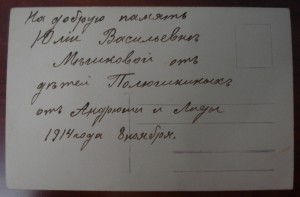 На добрую память
Юліи Васильевнѣ
Мышковой отъ
дѣтей Полюшкиныхъ
отъ Андрюши и Лиды
1914 года 8 ноября.